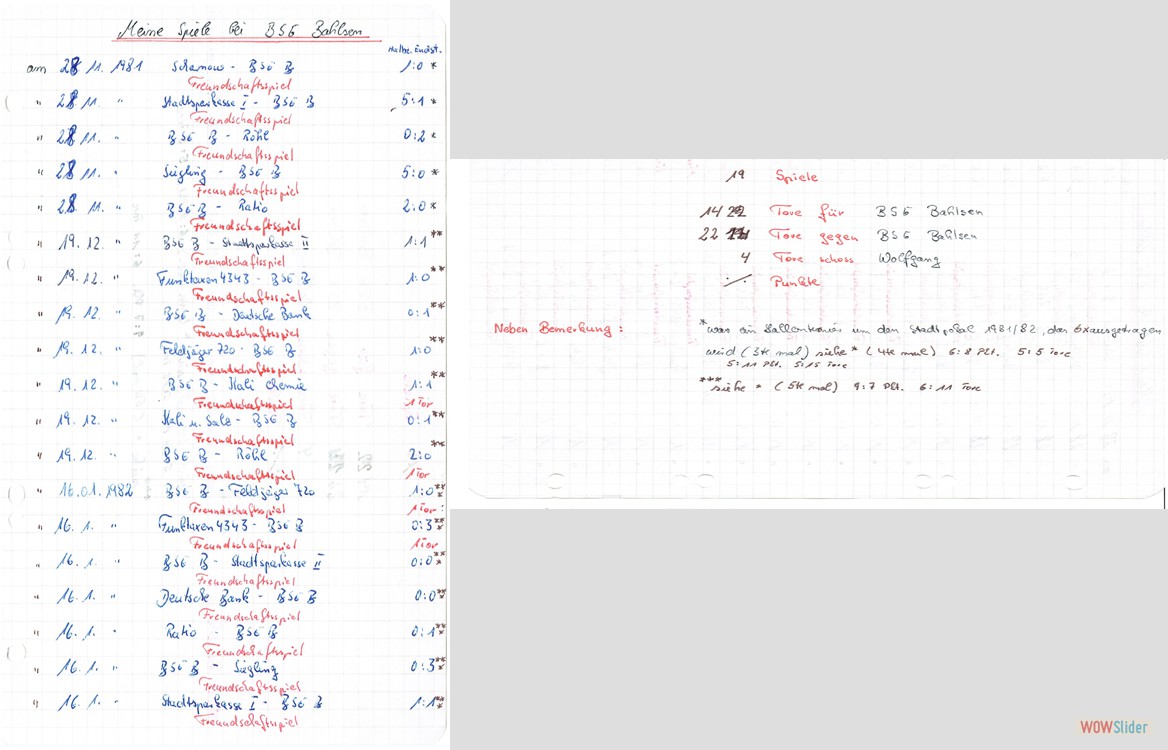 Meine Spiele bei BSG Bahlsen
Halbz. Endst.
am 28 11. 1981 Scharnow - BSG B 1:0 *
Freundschaftsspiel
" 28 11. " Stadtsparkasse I - BSG B 5:1 *
Freundschaftsspiel
" 28 11. " BSG B - Röhl 0:2 *
Freundschaftsspiel
" 28 11. " Siegling - BSG B 5:0 *
Freundschaftsspiel
" 28 11. " BSG B - Ratio 2:0 *
Freundschaftsspiel
" 19. 12. " BSG B - Stadtsparkasse II 1:1 **
Freundschaftsspiel
" 19. 12. " Funktaxen 4343 - BSG B 1:0 **
Freundschaftsspiel
" 19. 12. " BSG B - Deutsche Bank 0:1 **
Freundschaftsspiel
" 19. 12. " Feldjäger 720 - BSG B 1:0 **
Freundschaftsspiel
" 19. 12. " BSG B - Kali Chemie 1:1 **
Freundschaftsspiel 1 Tor
" 19. 12. " Kali u. Salz - BSG B 0:1 **
Freundschaftsspiel
" 19. 12. " BSG B - Röhl 2:0 **
Freundschaftsspiel 1 Tor
" 16. 01. 1982 BSG B - Feldjäger 720 1:0 ***
Freundschaftsspiel 1 Tor
" 16. 1. " Funktaxen 4343 - BSG B 0:3 ***
Freundschaftsspiel 1 Tor
" 16. 1. " BSG B - Stadtsparkasse II 0:0 ***
Freundschaftsspiel
" 16. 1. " Deutsche Bank - BSG B 0:0 ***
Freundschaftsspiel
" 16. 1. " Ratio - BSG B 0:1 ***
Freundschaftsspiel
" 16. 1. " BSG B - Siegling 0:3 ***
Freundschaftsspiel
" 16. 1. " Stadtsparkasse I - BSG B 1:1 ***
Freundschaftsspiel
19 Spiele
14 Tore für BSG Bahlsen
22 Tore gegen BSG Bahlsen
4 Tore schoss Wolfgang
Punkte
Neben Bemerkung :
* was ein Hallenturnier um den Stadtpokal 1981/82, das 6x ausgetragen
wird (3te mal) siehe * (4te mal) 6:8 Pkt. 5:5 Tore
5:11 Pkt. 5:15 Tore
*** siehe * (5te mal) 9:7 Pkt. 6:11 Tore
WOWSlider